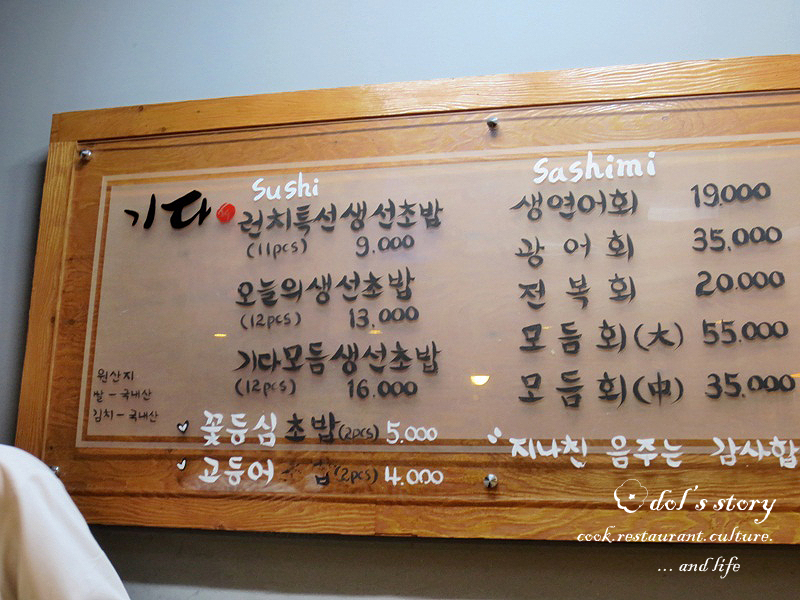 기다
Sushi
런치특선생선초밥
(11pcs) 9.000
오늘의생선초밥
(12pcs) 13,000
기다모듬생선초밥
(12pcs) 16.000
꽃등심 초밥(2pcs) 5.000
고등어 초밥(2pcs) 4.000
원산지
쌀 - 국내산
김치 - 국내산
Sashimi
생연어회 19.000
광어회 35.000
전복회 20.000
모듬회(大) 55.000
모듬회(中) 35.000
지나친 음주는 감사합
dol's story
cook.restaurant.culture.
... and life